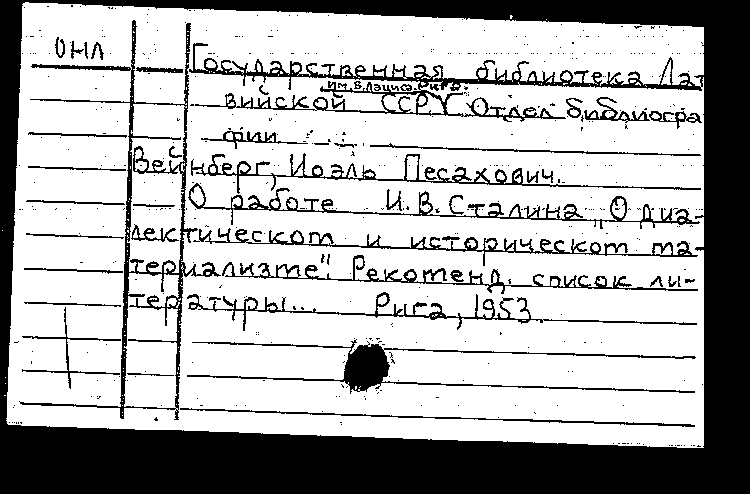 ОНЛ
Государственная библиотека Лат
им. В. Лациса. Рига.
вийской ССР. Отдел библиогра
фии
Вейнберг, Иоэль Песахович.
О работе И. В. Сталина „О диа-
лектическом и историческом ма-
териализме". Рекоменд. список ли-
тературы... Рига, 1953.